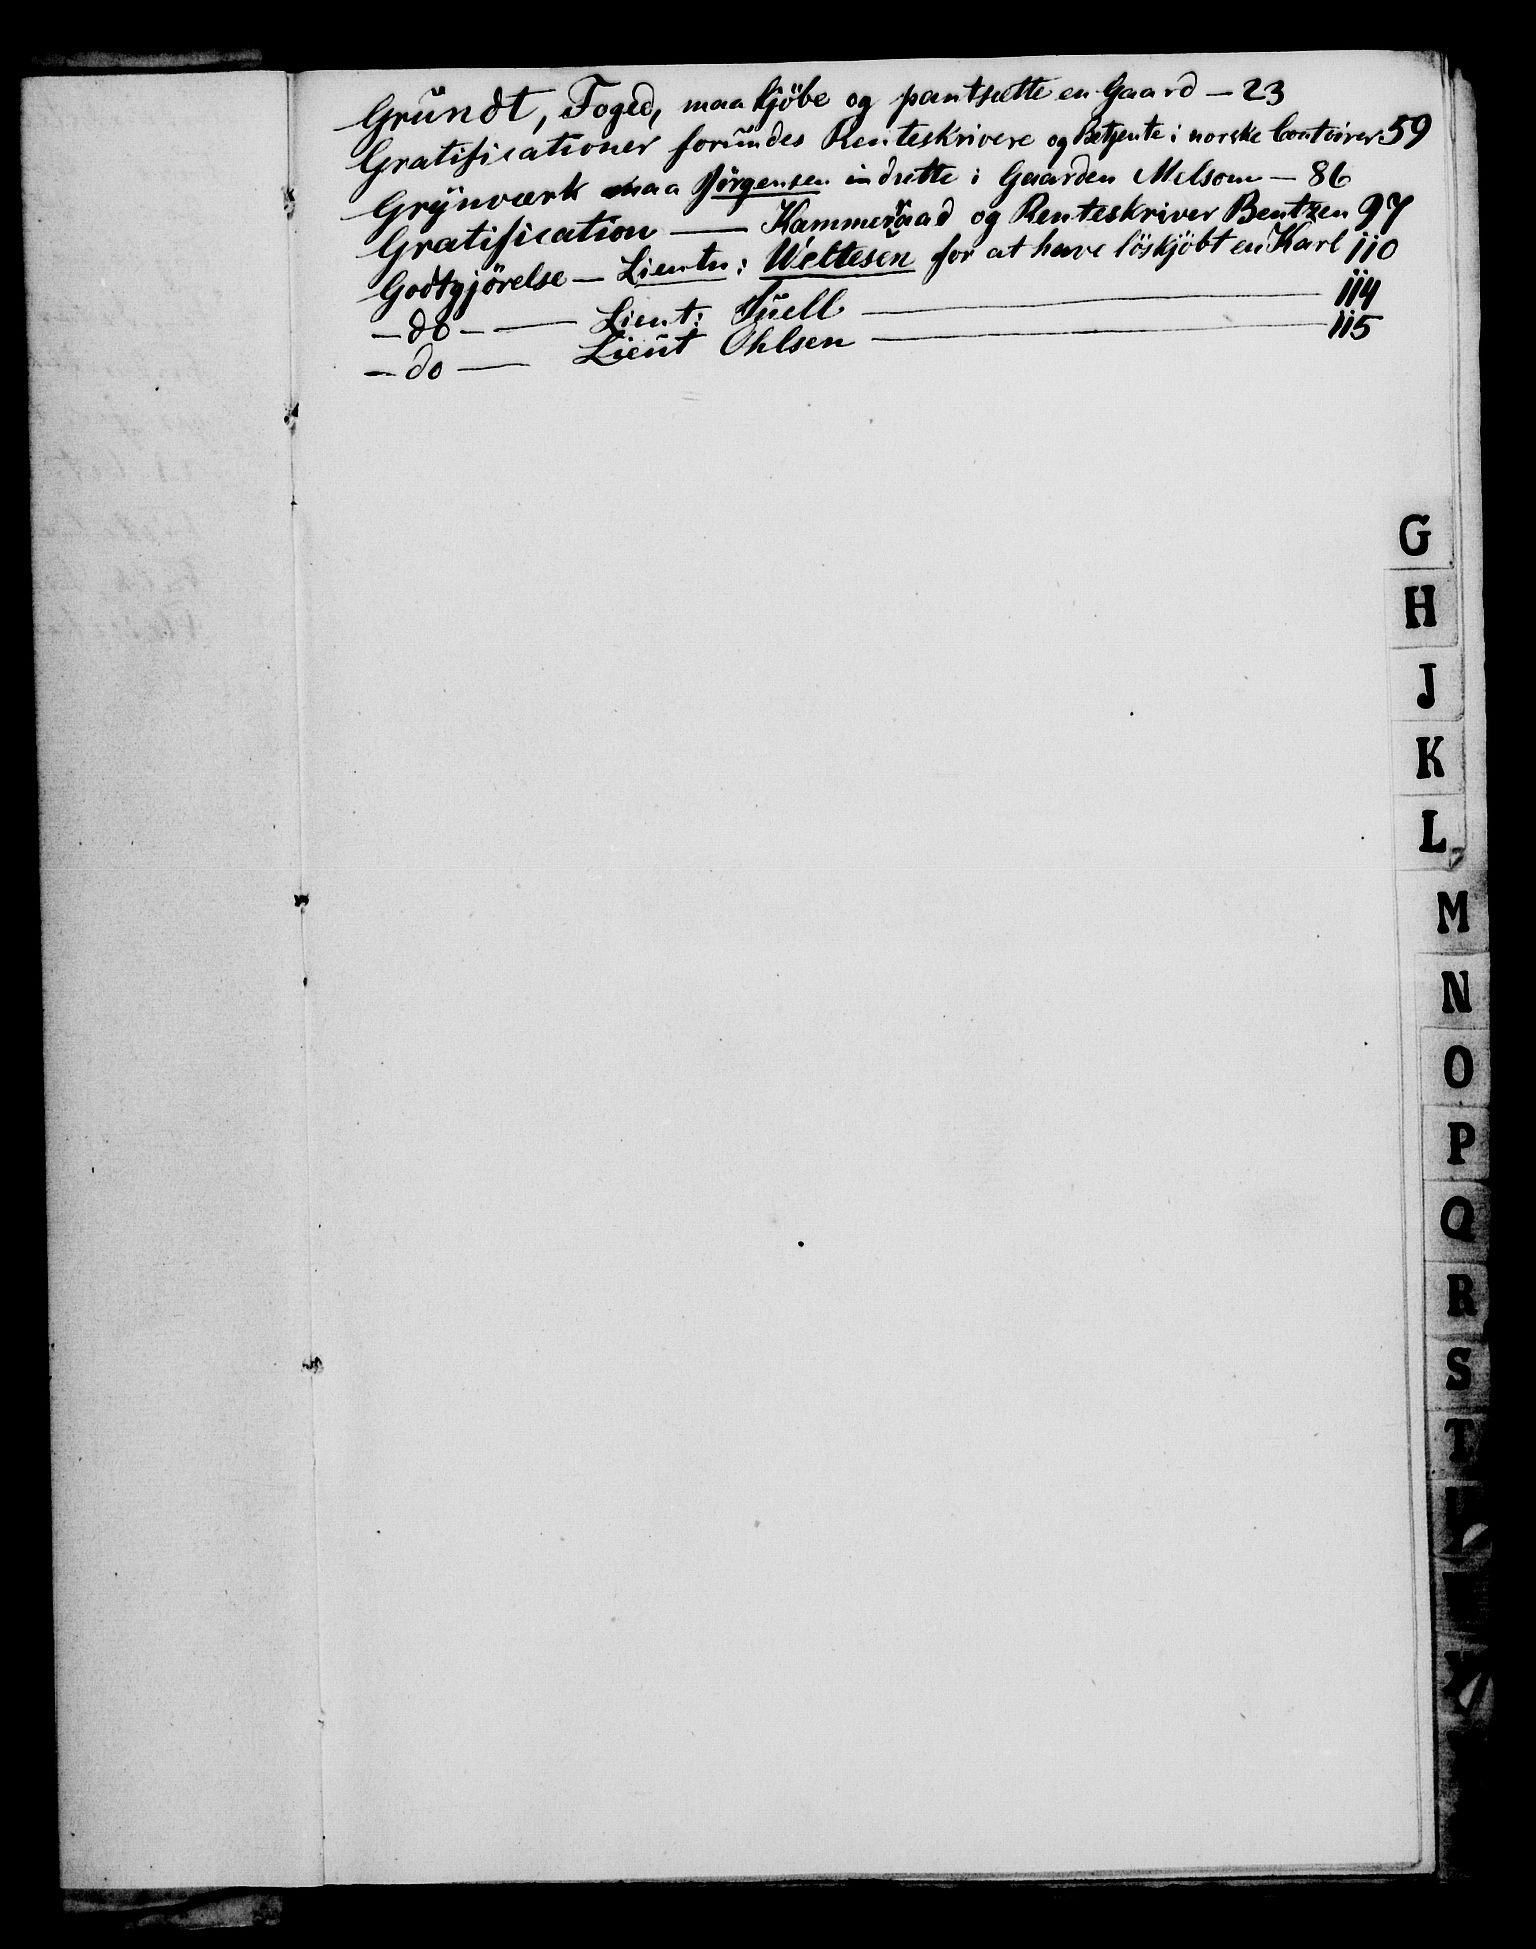 Grundt, Foged, maa kjöbe og pantsætte en Gaard — 23
Gratificationer forundes Renteskrivere og Betjente i norske Contoirer. 59
Grÿnværk maa Jörgensen indrette i Gaarden Melsom — 86
Gratification — Kammerraad og Renteskriver Bentzen 97
Godtgjörelse — Lieutn: Weltesen for at have löskjöbt en Karl 110
— do — — Lieut: Juell — 114
— do — Lieut Ohlsen — 115
G
H
J
K
L
M
N
O
P
Q
R
S
T